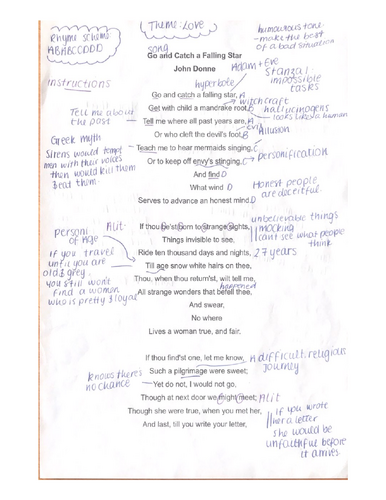 Rhyme Scheme
ABABCCDDD
Theme: Love
humourous tone
- make the best
of a bad situation
song
Go and Catch a Falling Star
John Donne
Adam + Eve
Stanza 1 -
impossible
tasks
instructions
hyperbole
Go and catch a falling star, A
witchcraft
Get with child a mandrake root, B
hallucinogens
looks like a human
Tell me about
the past
Tell me where all past years are, A
evil
Or who cleft the devil's foot, B
Allusion
Greek Myth
Sirens would tempt
men with their voices
then would kill them
Eat them.
Teach me to hear mermaids singing, C
Or to keep off envy's stinging, C
personification
And find D
What wind D
Serves to advance an honest mind. D
Honest people
are deceitful.
Alit-
If thou be'st born to strange sights,
Things invisible to see,
unbelievable things
mocking
cant see what people
think
personi
of Age
Ride ten thousand days and nights,
27 years
if you travel
until you are
old & grey.
you still wont
find a women
who is pretty & loyal
Till age snow white hairs on thee,
Thou, when thou return'st, wilt tell me,
happened
All strange wonders that befell thee,
And swear,
No where
Lives a woman true, and fair.
If thou find'st one, let me know,
A difficult religious
journey
Such a pilgrimage were sweet;
knows theres
no chance
Yet do not, I would not go,
Though at next door we might meet;
Alit
Though she were true, when you met her,
And last, till you write your letter,
if you wrote
her a letter
she would be
unfaithful before
it arrives